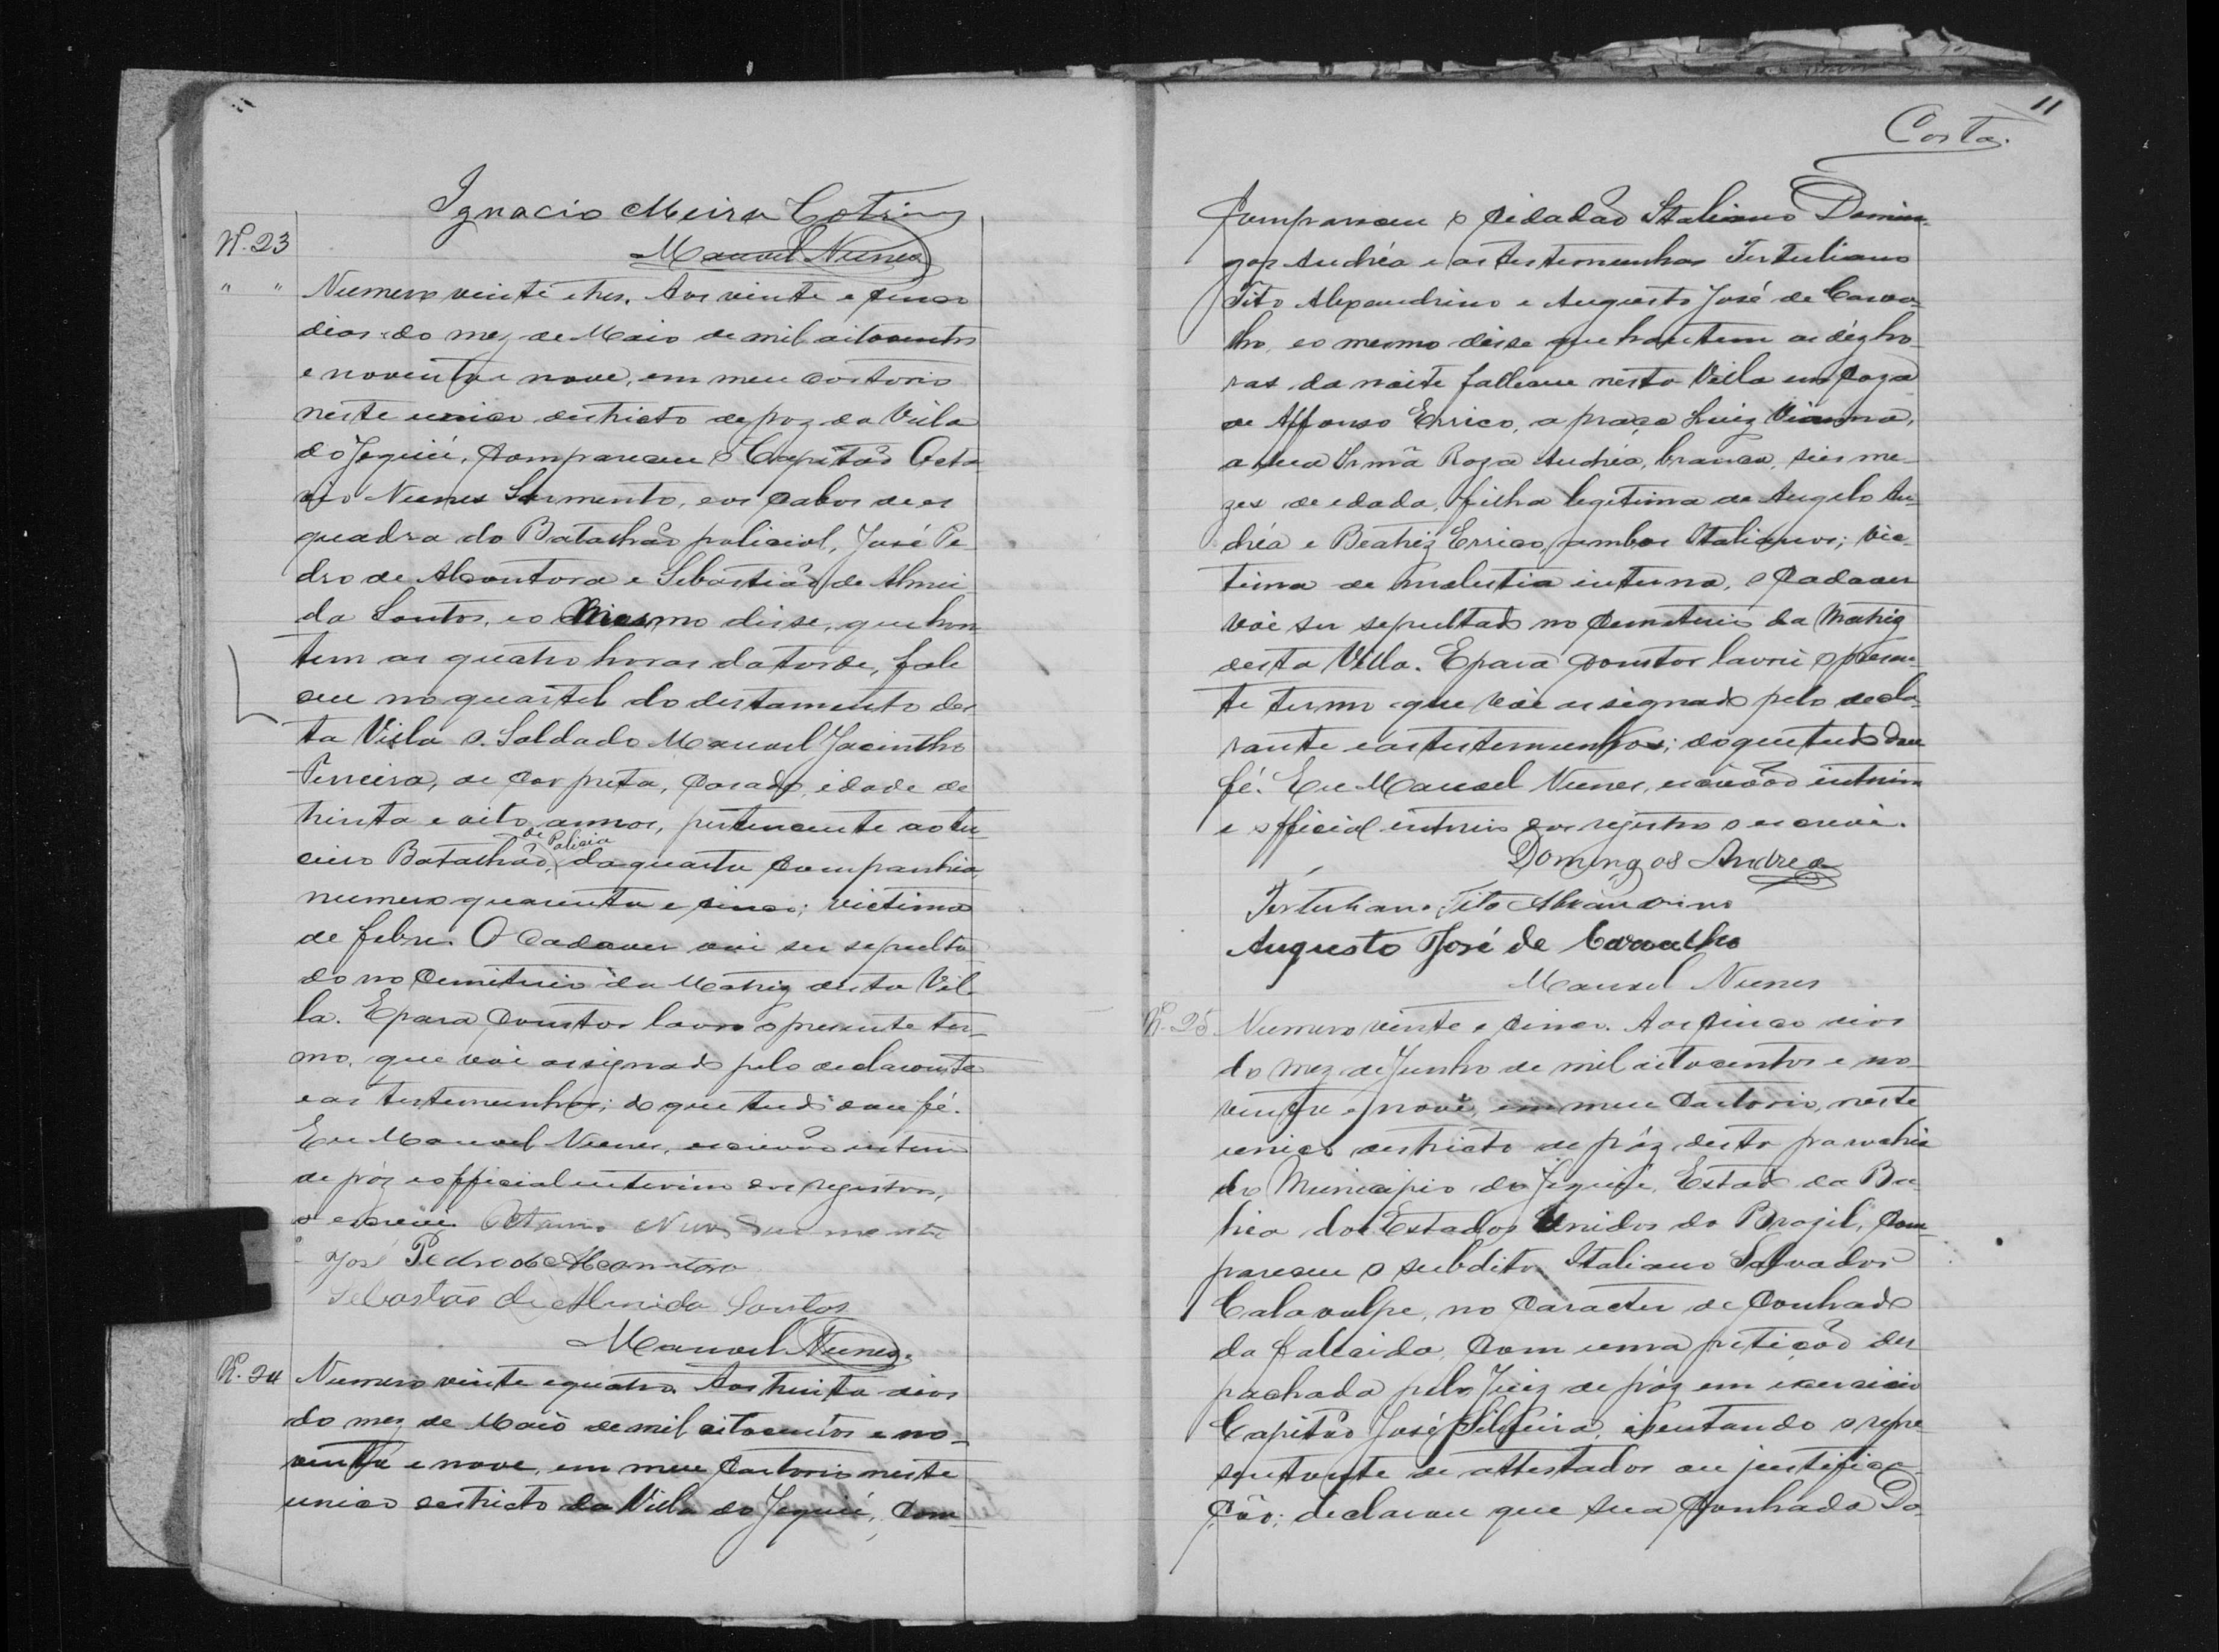 Ignacio Meira Cotrim
Manoel Nunes
N. 23
" " Numero vinte e tres. Aos vinte e cinco
dias do mez de Maio de mil oitocentos
e noventa e nove, em meu cartorio
neste unico destricto de paz da Villa
do Jequié, compareceu o Capitão Octa
vio Nunes Sarmento, e os cabos de es
quadra do Batalhão policial, José Pe
dro de Alcantara e Sebastião de Almei
da Santos, e o mesmo disse, que hon
tem as quatro horas da tarde, fale
ceu no quartel do destamento des
ta Villa o Soldado Manoel Jacintho
Perreira, de cor preta, casado, idade de
trinta e oito annos, pertencente ao ter
ceiro Batalhão de Policia, da quarta companhia
numero quarenta e cinco; victima
de febre. O cadaver vai ser sepulta
do no cemiterio da Matriz desta Vil
la. E para constar lavro o presente ter-
mo, que vai assignado pelo declarante
e as testemunhas; do que tudo dou fé.
Eu Manoel Nunes, escrivão interin
de páz e official interino dos registros,
o escrevi. Octavio Nunes Sarmento
José Pedro de Alcantara
Sebastão de Almeida Santos
Manoel Nunes.
N. 24 Numero vinte e quatro. Aos trinta dias
do mez de Maio de mil oitocentos e no-
venta e nove, em meu cartorio neste
unico destricto da Villa do Jequié, com-
11
Costa.
Compareceu o cidadão Italiano Domin-
gos Andréa e as testemunhas Tertuliano
Tito Alexandrino e Augusto José de Carva-
lho, e o mesmo disse que hontem as déz ho-
ras da noite falleceu nesta Villa em caza
de Affonso Errico, a praça Luiz Vianna,
a sua Irmã Roza Andréa, branca, seis me-
zes de edade, filha legitima de Angelo An-
dréa e Beatriz Errico, ambos Italianos; vic-
tima de molestia interna, o cadaver
vai ser sepultado no cemiterio da Matriz
desta Villa. E para constar lavrei o presen-
te termo que vai assignado pelo decla-
rante e as testemunhas; do que tudo dou
fé. Eu Manoel Nunes, escrivão interin
e official interino dos registros o escrevi.
Domingos Andrea
Tertuliano Tito Alexandrino
Augusto José de Carvalho
Manoel Nunes
N. 25. Numero vinte e cinco. Aos cinco dias
do mez de Junho de mil oitocentos e no-
venta e nove, em meu cartorio, neste
unico destricto de páz desta parochia
do Municipio do Jequié, Estado da Ba-
hia dos Estados Unidos do Brazil, com-
pareceu o subdito Italiano Salvador
Calavolpe, no caracter de cunhado
da fallecida, com uma petição des
pachada pelo Juiz de páz em exercicio
Capitão José Silveira, isentando o repre
sentante de attestados ou justifica-
ção; declarou que sua cunhada Do-